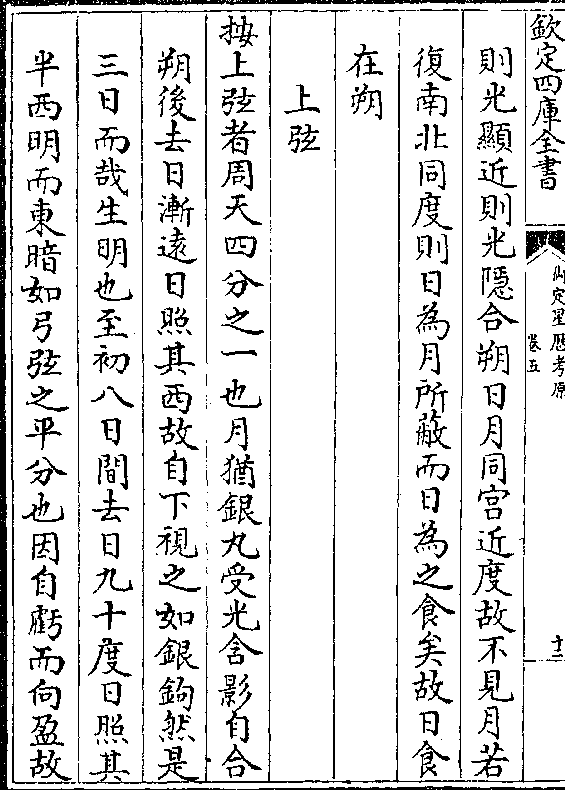 欽定四庫全書
御定星厯考原
卷五
十二
則光顯近則光隱合朔日月同宮近度故不見月若
復南北同度則日為月所蔽而日為之食矣故日食
在朔
上弦
按上弦者周天四分之一也月猶銀丸受光含影自合
朔後去日漸逺日照其西故自下視之如銀鉤然是
三日而哉生明也至初八日間去日九十度日照其
半西明而東暗如弓弦之平分也因自虧而向盈故